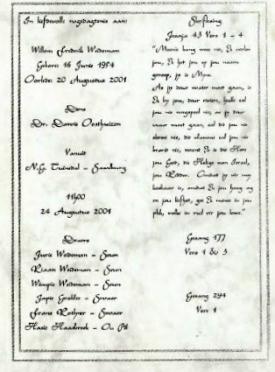 In liefdevolle nagedagtenis aan:
Willem Frederik Wideman
Gebore: 16 Junie 1954
Oorlede: 20 Augustus 2001
Diens
Dr. Dannie Oosthuizen
Vanuit
N.G. Tuinedal -
11h00
24 Augustus 2001
Draers
Jurie Wideman - Seun
Riaan Wideman - Seun
Wimpie Wideman - Seun
Japie - Swaer
Frans - Swaer
Hasie Haasbroek - Ou Pel
Skriflesing
Jesaja 43 Vers 1 - 4
"Moenie bang wees nie, Ek verlos
jou, Ek het jou op jou naam
geroep, jy is Myne.
As jy deur water moet gaan, is
Ek by jou; deur riviere, hulle sal
jou nie wegspoel nie; as jy deur
vuur moet gaan, sal dit jou nie
skroei nie, die vlamme sal jou nie
brand nie, want Ek is die Here
jou God, die Heilige van Israel,
jou Redder. Omdat jy vir my
kosbaar is, omdat Ek jou hoog ag
en jou liefhet, gee Ek mense in jou
plek, volke in ruil vir jou lewe."
Gesang 477
Vers 1 & 3
Gesang 294
Vers 1